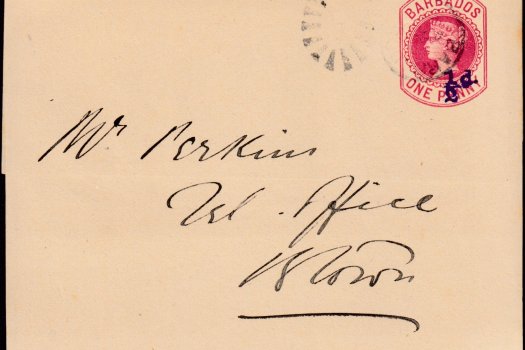 BARBADOS
ONE PENNY
½d
Mr Perkins
Tel. Office
Btown